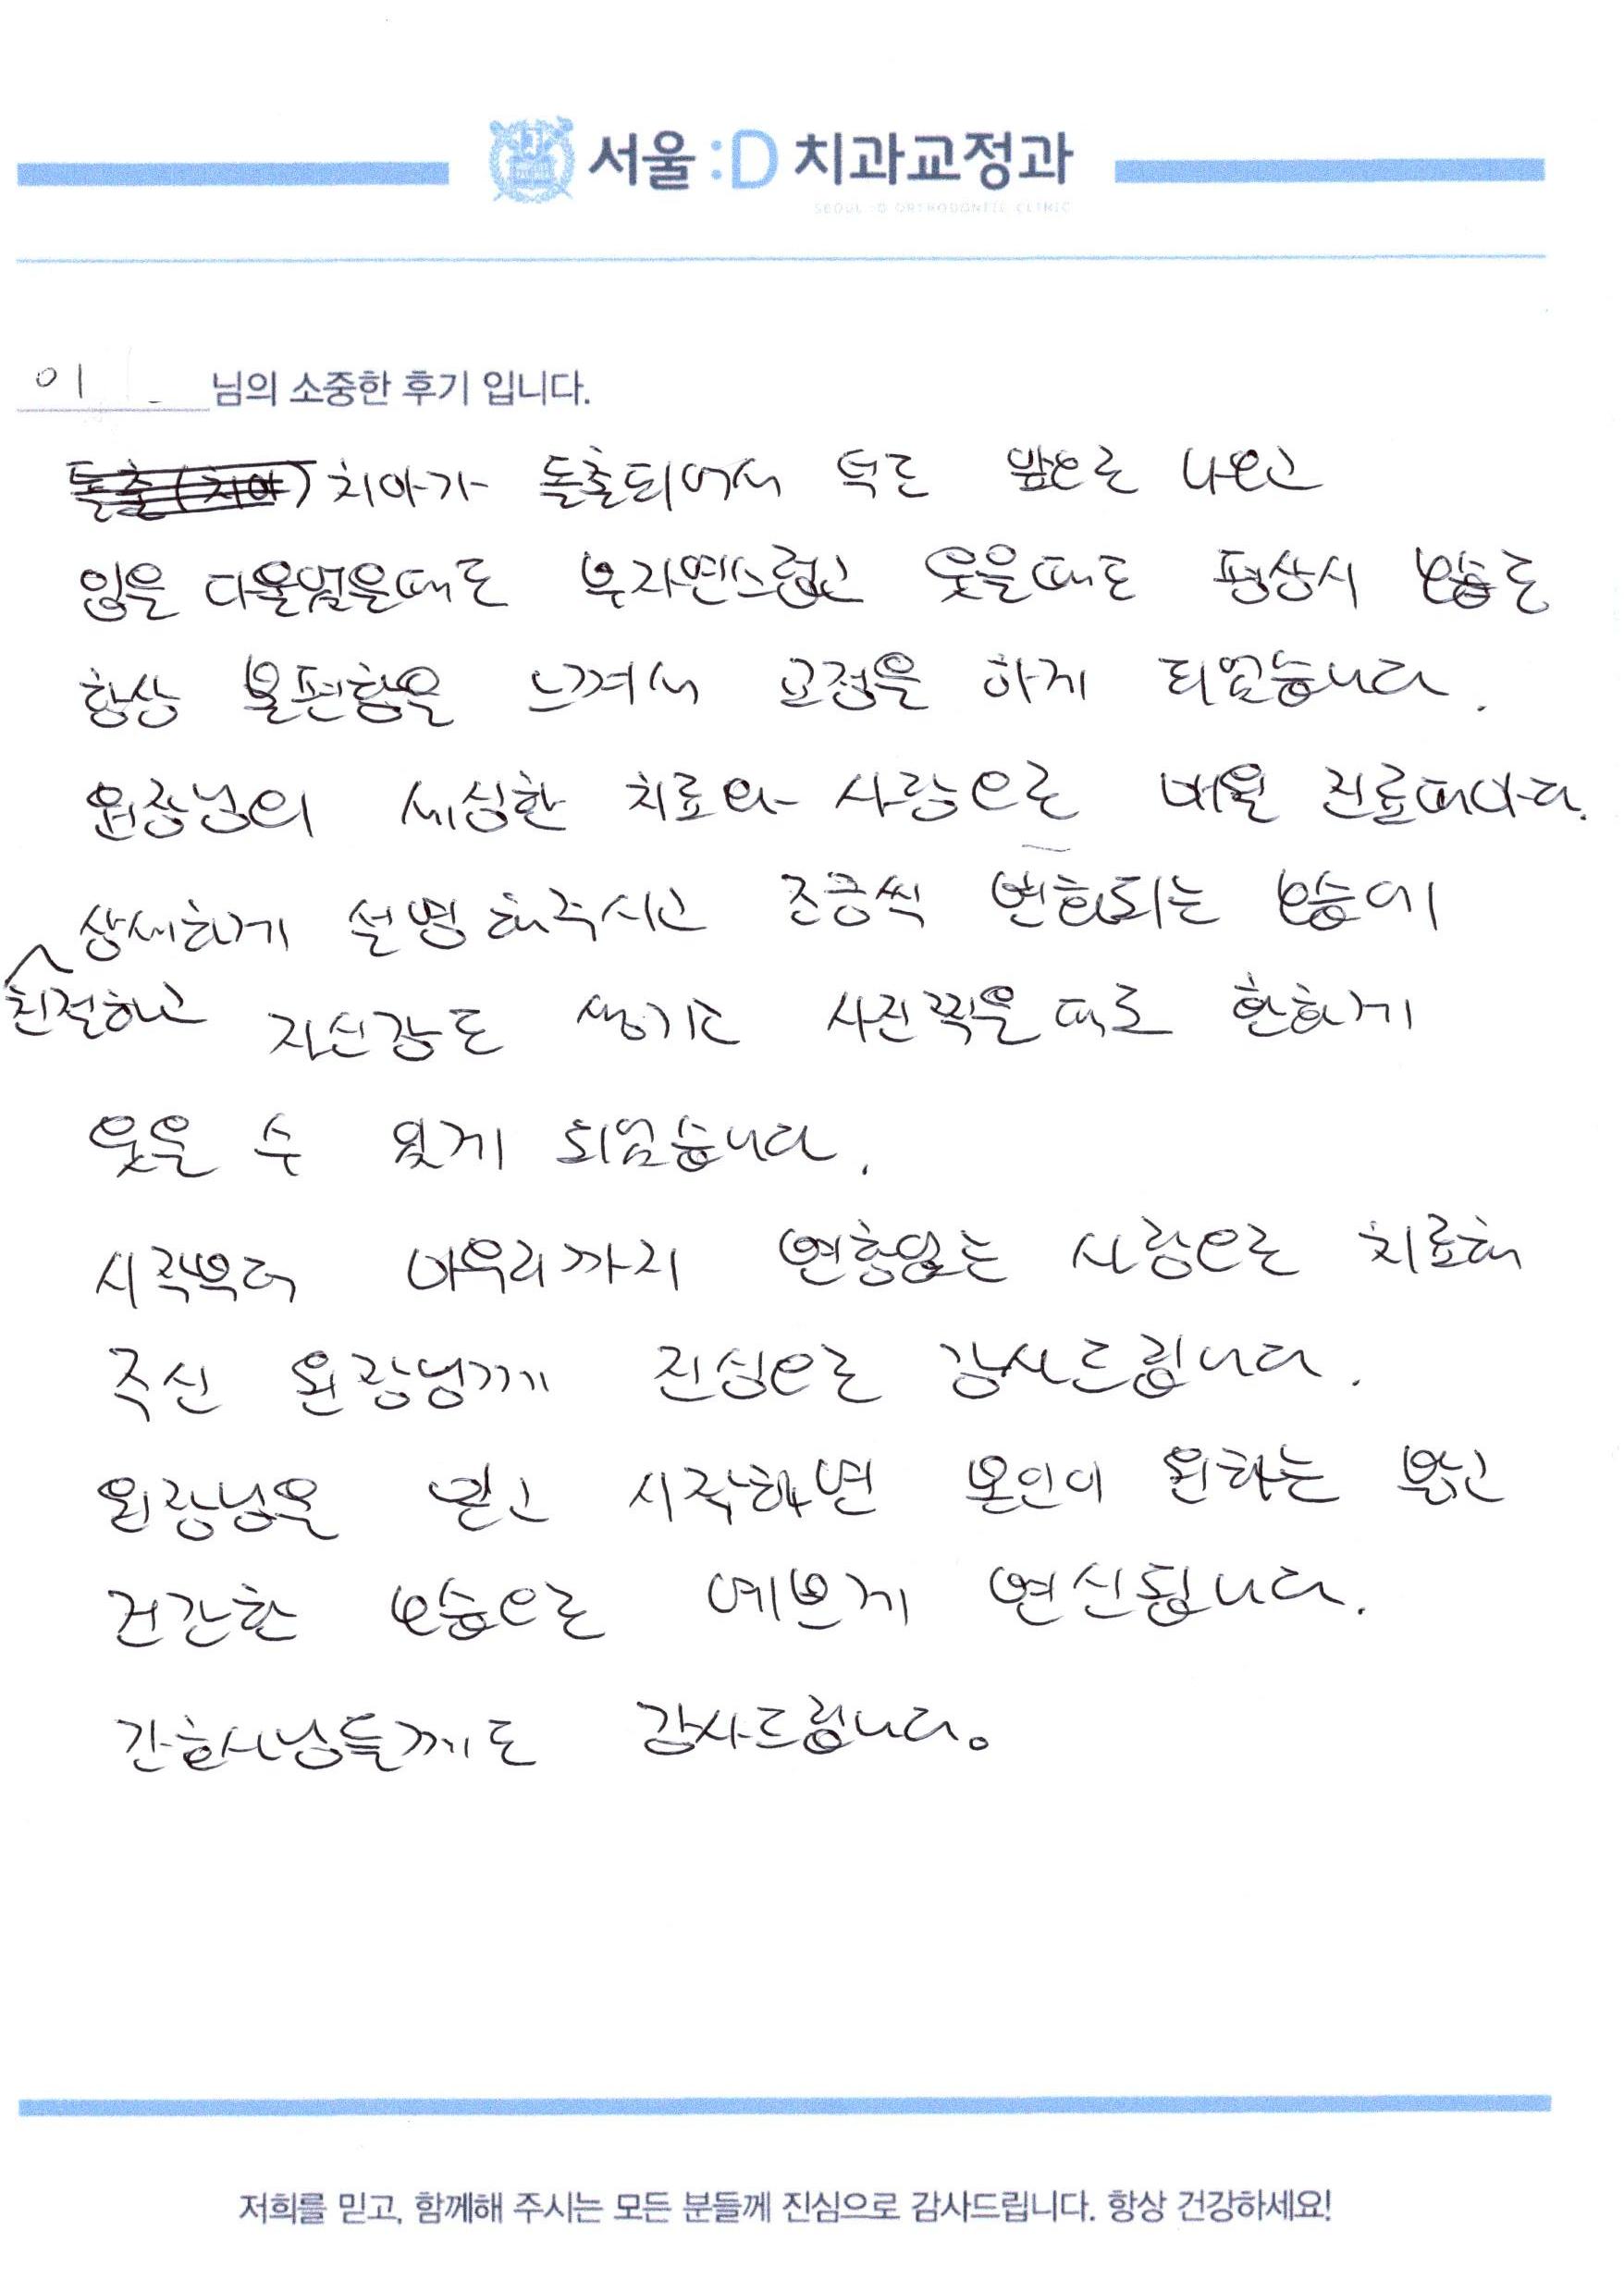 서울 :D 치과교정과
SEOUL :D ORTHODONTIC CLINIC
이 님의 소중한 후기 입니다.
치아가 돌출되어서 턱도 앞으로 나오고
입을 다물었을때도 부자연스럽고 웃을때도 평상시 모습도
항상 불편함을 느껴서 교정을 하게 되었습니다.
원장님의 세심한 치료와 사랑으로 매월 진료때마다.
친절하고 상세하게 설명해주시고 조금씩 변화되는 모습에
자신감도 생기고 사진찍을때도 환하게
웃을 수 있게 되었습니다.
시작부터 마무리까지 변함없는 사랑으로 치료해
주신 원장님께 진심으로 감사드립니다.
원장님을 믿고 시작하면 본인이 원하는 밝고
건강한 모습으로 예쁘게 변신됩니다.
간호사님들께도 감사드립니다.
저희를 믿고, 함께해 주시는 모든 분들께 진심으로 감사드립니다. 항상 건강하세요!